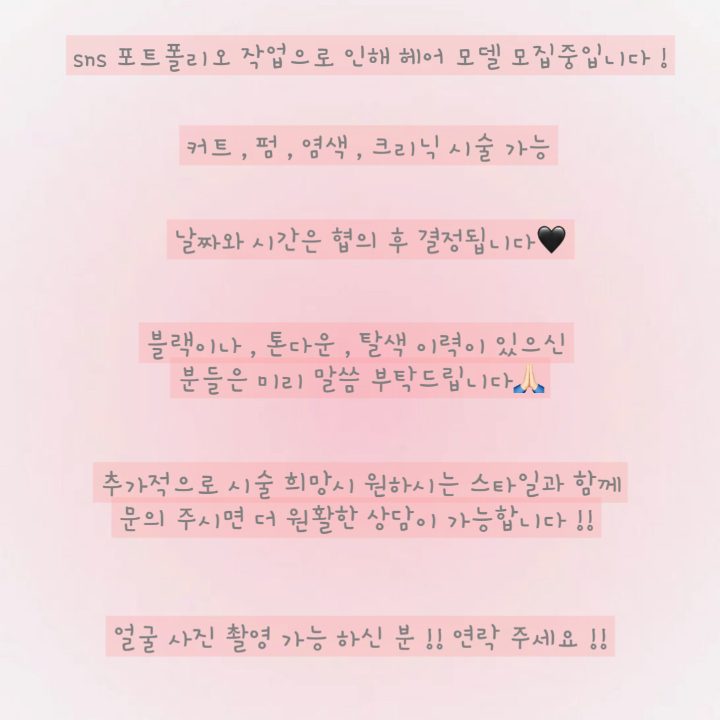 sns 포트폴리오 작업으로 인해 헤어 모델 모집중입니다 !
커트 , 펌 , 염색 , 크리닉 시술 가능
날짜와 시간은 협의 후 결정됩니다🖤
블랙이나 , 톤다운 , 탈색 이력이 있으신
분들은 미리 말씀 부탁드립니다🙏🏻
추가적으로 시술 희망시 원하시는 스타일과 함께
문의 주시면 더 원활한 상담이 가능합니다 !!
얼굴 사진 촬영 가능 하신 분 !! 연락 주세요 !!